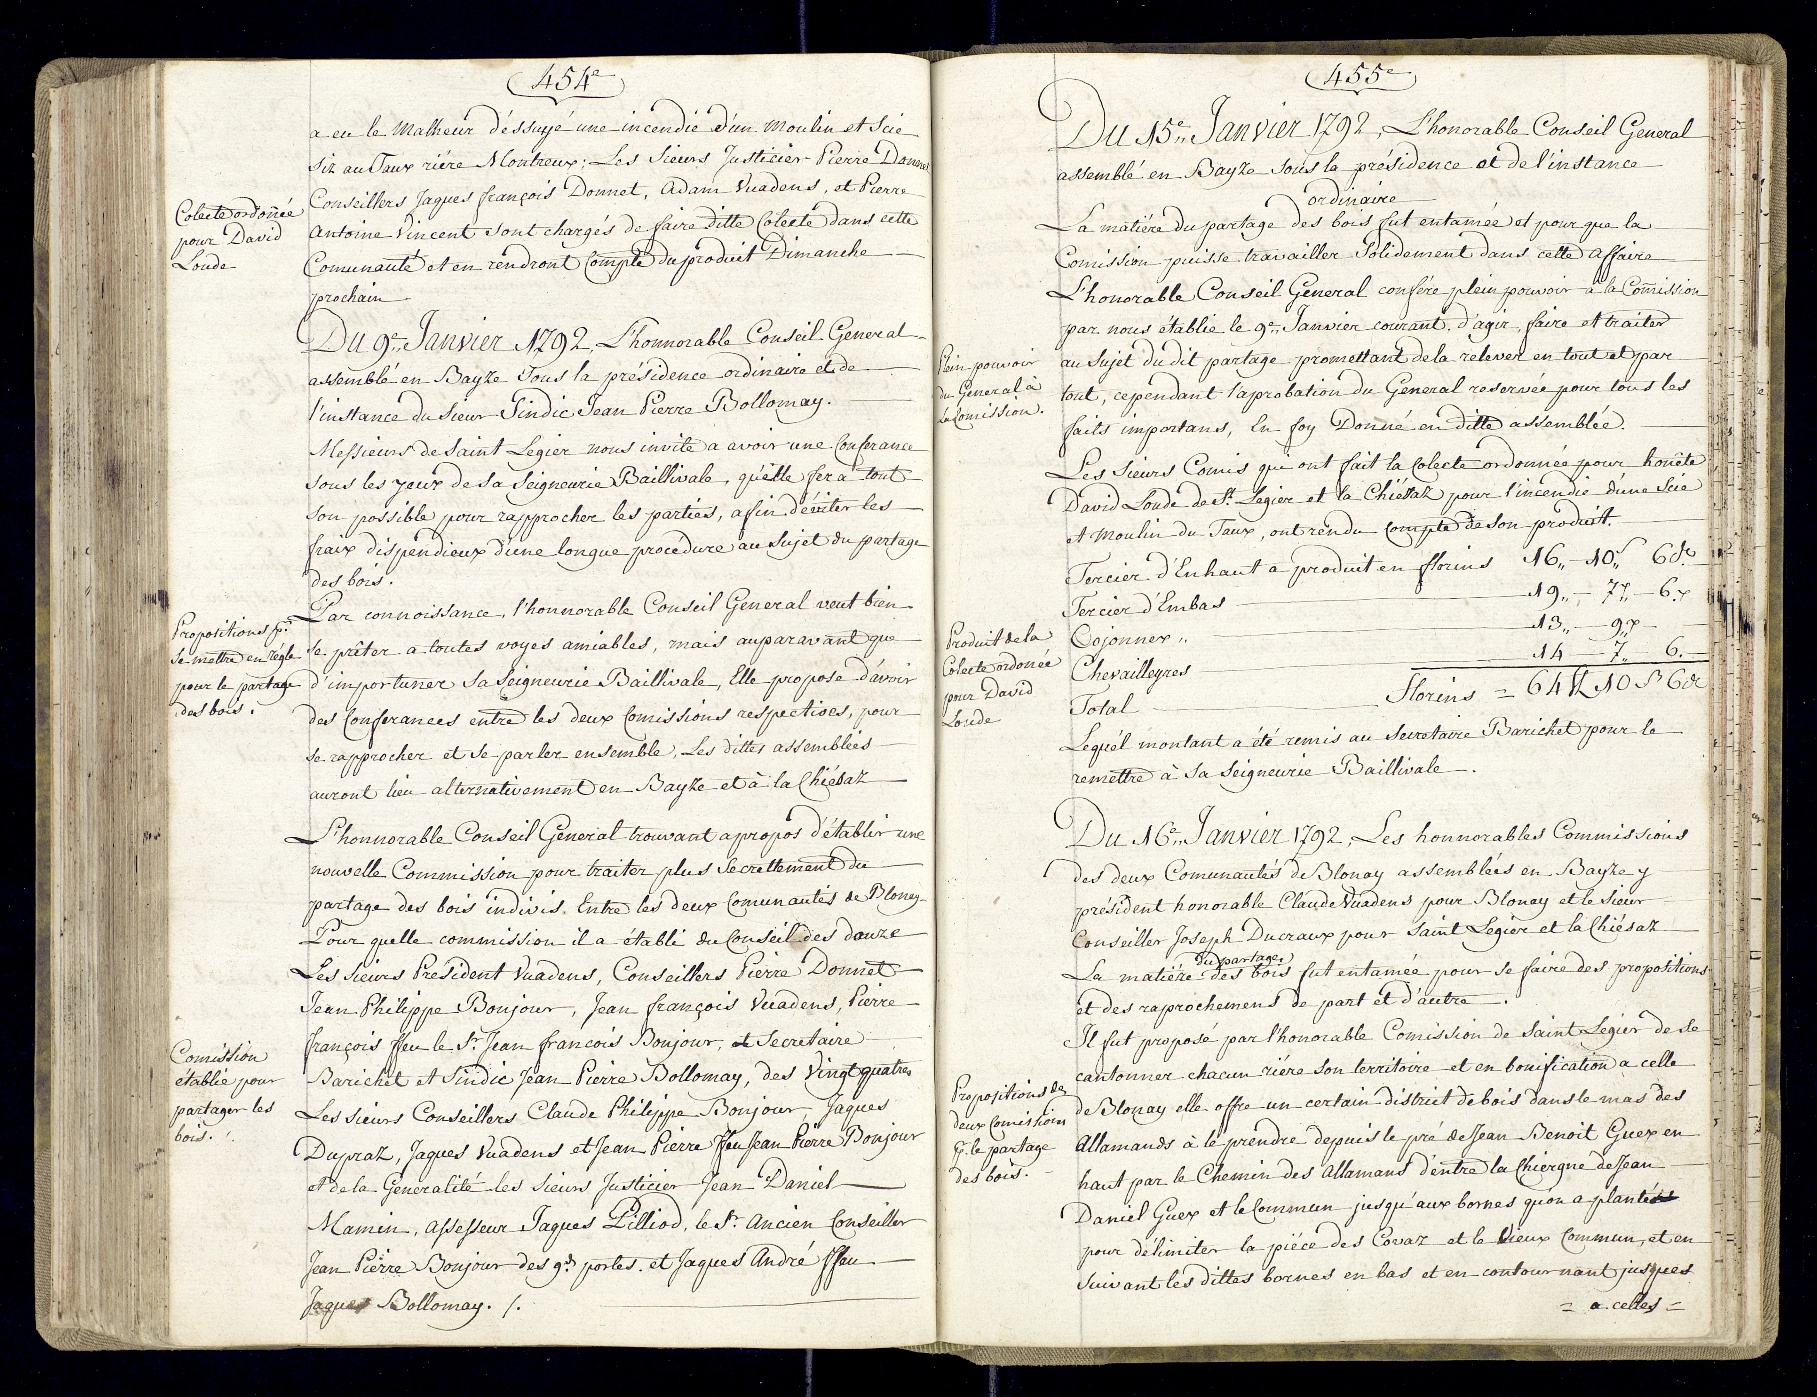 454e
a eu le Malheur d'éssuyé une incendie d'un Moulin et Scie
Siz au Taux riére Montreux; Les Sieurs Justicier Pierre Donnet
Conseillers Jaques françois Donnet, Adam Vuadens, et Pierre
Colecte ordonée
pour David
Loude
Antoine Vincent sont chargés de faire ditte Colecte dans cette
Comunauté et en rendront Compte du produit Dimanche
prochain
Du 9e,, Janvier 1792, L'honnorable Conseil General
assemblé en Bayze sous la présidence ordinaire et de
l'instance du Sieur Sindic Jean Pierre Bollomay.
Messieurs de Saint Legier nous invite a avoir une Conferance
sous les yeux de sa Seigneurie Baillivale, qu'elle fera tout
son possible pour rapprocher les parties, afin d'éviter les
fraix dispendieux d'une longue procédure au sujet du partage
des bois.
Propositions p.r
se mettre en régle
pour le partage
des bois.
Par connoissance, l'honnorable Conseil General veut bien
se prêter a toutes voyes amiables, mais auparavant que
d'importuner sa Seigneurie Baillivale, Elle propose d'avoir
des Conferances entre les deux Comissions respectives, pour
se rapprocher et se parler ensemble, Les dittes assemblées
auront lieu alternativement en Bayze et à la Chiésaz
L'honnorable Conseil General trouvant apropos d'établir une
nouvelle Commission pour traiter plus secrettement du
partage des bois indivis. Entre les deux Comunautés de Blonay
Pour quelle commission il a établi du Conseil des douze
Les Sieurs Président Vuadens, Conseillers Pierre Donnet
Jean Philippe Bonjour, Jean françois Vuadens, Pierre
Comission
établie pour
partager les
bois. /.
françois ffeu le Sr. Jean francois Bonjour, et Secretaire
Barichet et Sindic Jean Pierre Bollomay, des Vingt quatres
Les Sieurs Conseillers Claude Philippe Bonjour, Jaques
Dupraz, Jaques Vuadens et Jean Pierre ffeu Jean Pierre Bonjour
et de la Generalité les Sieurs Justicier Jean Daniel
Mamin, Assesseur Jaques Pilliod, le Sr. Ancien Conseiller
Jean Pierre Bonjour des gds portes. et Jaques André ffeu
Jaques Bollomay. /.
455e
Du 15e,, Janvier 1792, L'honorable Conseil General
assemblé en Bayze sous la présidence et de l'instance
ordinaire
La matiére du partage des bois fut entamée et pour que la
Comission puisse travailler Solidement dans cette affaire
L'honorable Conseil General confére plein pouvoir a la Comission
par nous établie le 9e,, Janvier courant, d'agir, faire et traiter
Plein pouvoir
du General à
la Comission.
au Sujet du dit partage promettant de la relever en tout et par
tout, cependant l'aprobation du General reservée pour tous les
faits importans, En foy Donné en ditte assemblée.
Les Sieurs Comis qui ont fait la Colecte ordonnée pour honête
David Loude de St. Legier et la Chiésaz pour l'incendie d'une Scie
et Moulin du Taux, ont rendu compte de son produit.
Tercier d'Enhaut a produit en florins 16,,-10,,s 6 d.
Tercier d'Embas 19,,- 7,,-6.
Produit de la
Colecte ordonée
pour David
Loude
Cojonnex,, 13,,- 9,,
Chevailleyres 14 - 7,, 6.
Total Florins = 64 10 s 6 d
Lequél montant a été remis au Secretaire Barichet pour le
remettre à sa Seigneurie Baillivale.
Du 16e,, Janvier 1792, Les honnorables Commissions
des deux Comunautés de Blonay assemblées en Bayze y
président honorable Claude Vuadens pour Blonay et le Sieur
Conseiller Joseph Ducraux pour Saint Legier et la Chiésaz
du partage
La matiére des bois fut entamée pour se faire des propositions
et des raprochemens de part et d'autre.
Il fut proposé par l'honorable Comission de Saint Legier de se
cantonner chacun riére son territoire et en bonification a celle
Propositions des
deux Comissions
p. le partage
des bois.
de Blonay elle offre un certain district de bois dans le mas des
Allamands à le prendre depuis le pré de Jean Benoit Guex en
haut par le Chemin des Allamans d'entre la Chiergne de Jean
Daniel Guex et le Commun jusqu'aux bornes qu'on a planté
pour délimiter la piéce des Covaz et le Vieux Commun, et en
Suivant les dittes bornes en bas et en contournant jusques
= a celles =